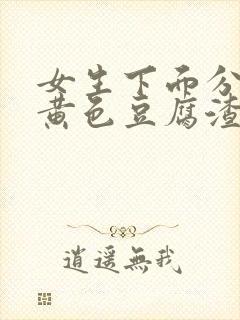 女生下面分
黄色豆腐渣
逍遥無我